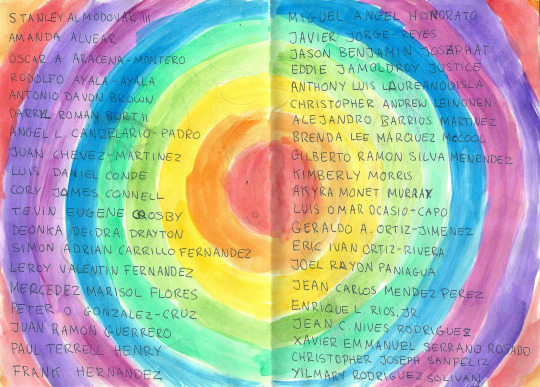 STANLEY ALMODOVAR III
AMANDA ALVEAR
OSCAR A ARACENA-MONTERO
RODOLFO AYALA-AYALA
ANTONIO DAVON BROWN
DARRYL ROMAN BURT II
ANGEL L. CANDELARIO-PADRO
JUAN CHEVEZ-MARTINEZ
LUIS DANIEL CONDE
CORY JAMES CONNELL
TEVIN EUGENE CROSBY
DEONKA DEIDRA DRAYTON
SIMON ADRIAN CARRILLO FERNANDEZ
LEROY VALENTIN FERNANDEZ
MERCEDEZ MARISOL FLORES
PETER O GONZALEZ-CRUZ
JUAN RAMON GUERRERO
PAUL TERRELL HENRY
FRANK HERNANDEZ
MIGUEL ANGEL HONORATO
JAVIER JORGE-REYES
JASON BENJAMIN JOSAPHAT
EDDIE JAMOLDROY JUSTICE
ANTHONY LUIS LAUREANODISLA
CHRISTOPHER ANDREW LEINONEN
ALEJANDRO BARRIOS MARTINEZ
BRENDA LEE MARQUEZ MCCOOL
GILBERTO RAMON SILVA MENENDEZ
KIMBERLY MORRIS
AKYRA MONET MURRAY
LUIS OMAR OCASIO-CAPO
GERALDO A. ORTIZ-JIMENEZ
ERIC IVAN ORTIZ-RIVERA
JOEL RAYON PANIAGUA
JEAN CARLOS MENDEZ PEREZ
ENRIQUE L. RIOS, JR.
JEAN C. NIVES RODRIGUEZ
XAVIER EMMANUEL SERRANO ROSADO
CHRISTOPHER JOSEPH SANFELIZ
YILMARY RODRIGUEZ SOLIVAN